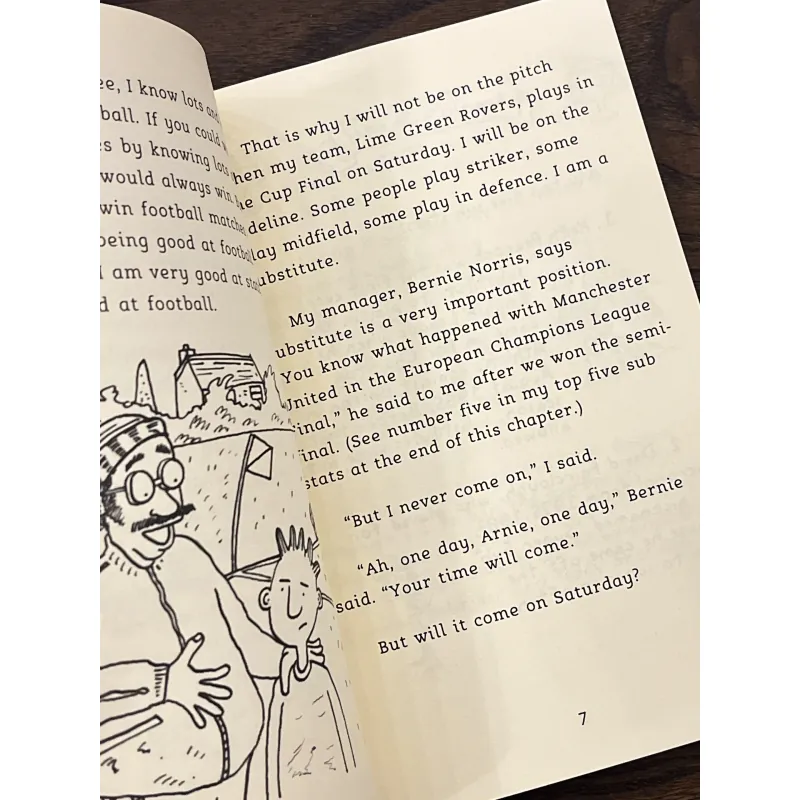 ee, I know lots and
ball. If you could
s by knowing lots
would always win
win football matches
being good at football
I am very good at
d at football.
That is why I will not be on the pitch
hen my team, Lime Green Rovers, plays in
e Cup Final on Saturday. I will be on the
deline. Some people play striker, some
lay midfield, some play in defence. I am a
ubstitute.
My manager, Bernie Norris, says
ubstitute is a very important position.
You know what happened with Manchester
United in the European Champions League
inal,” he said to me after we won the semi-
inal. (See number five in my top five sub
stats at the end of this chapter.)
“But I never come on,” I said.
“Ah, one day, Arnie, one day,” Bernie
said. “Your time will come.”
But will it come on Saturday?
7